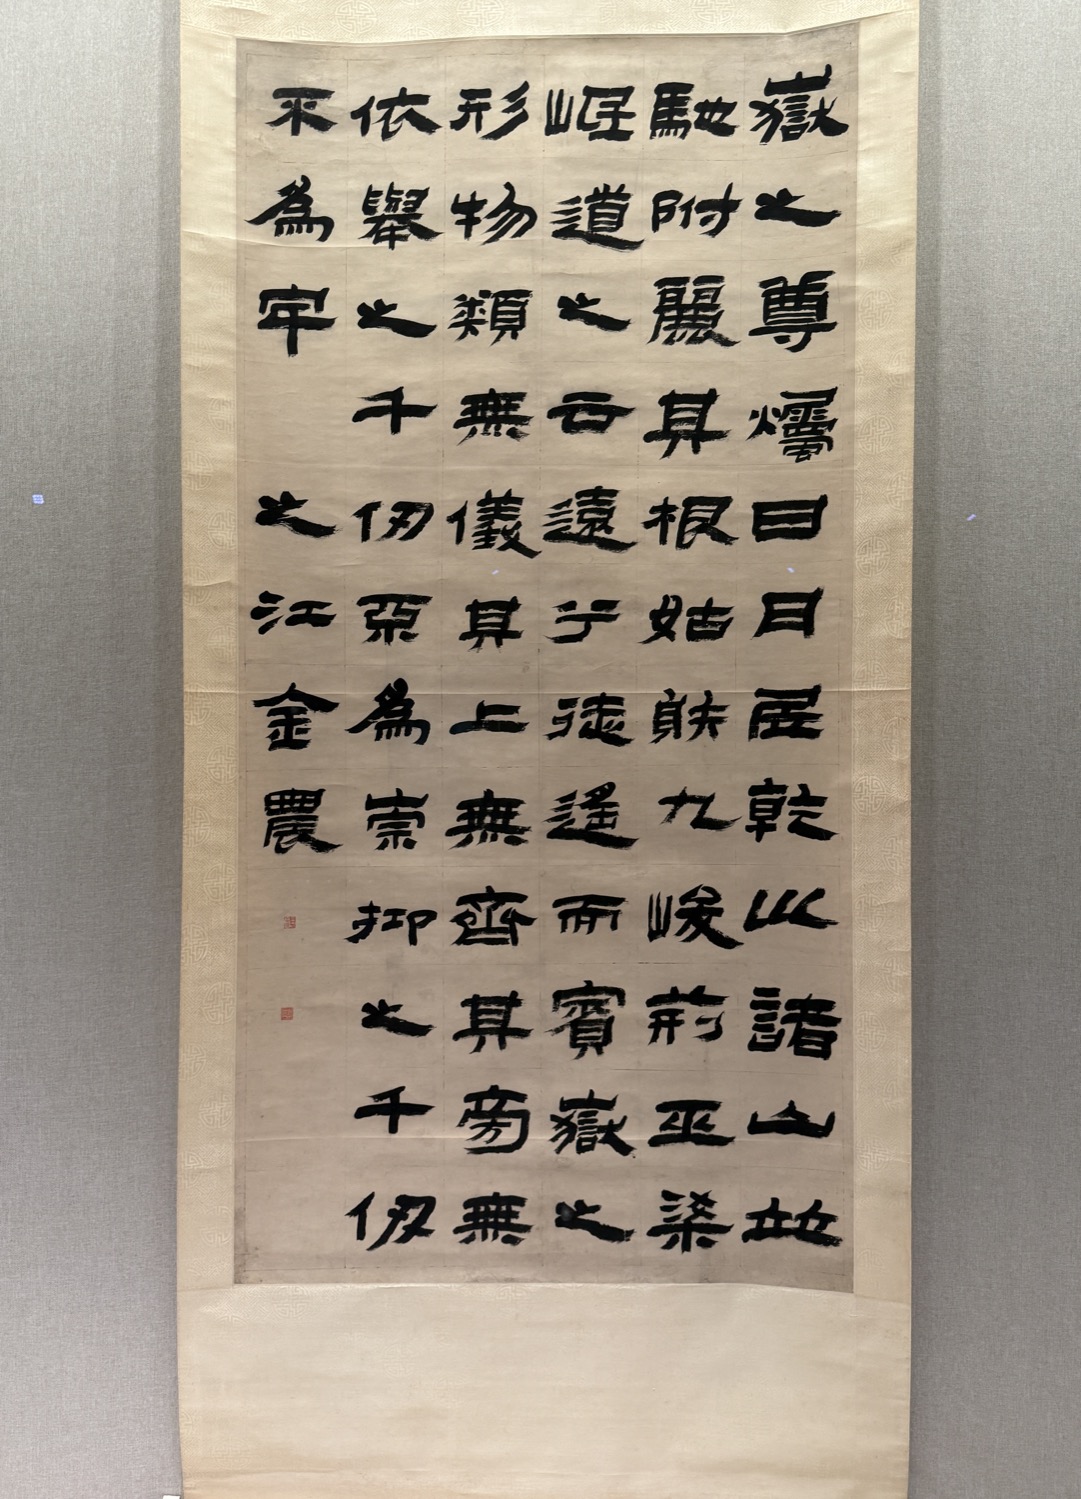 嶽之尊爥日月居乾以諸山並
馳附麗其根姑䠶九峻荊巫梁
岷道之云遠兮徒遙而賓嶽之
形物類無儀其上無齊其旁無
依舉之千仞亞為崇抑之千仞
不為牢 之江金農